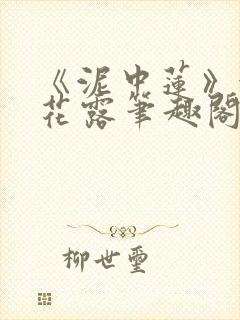 《泥中莲》
花露笔趣阁
柳世玺